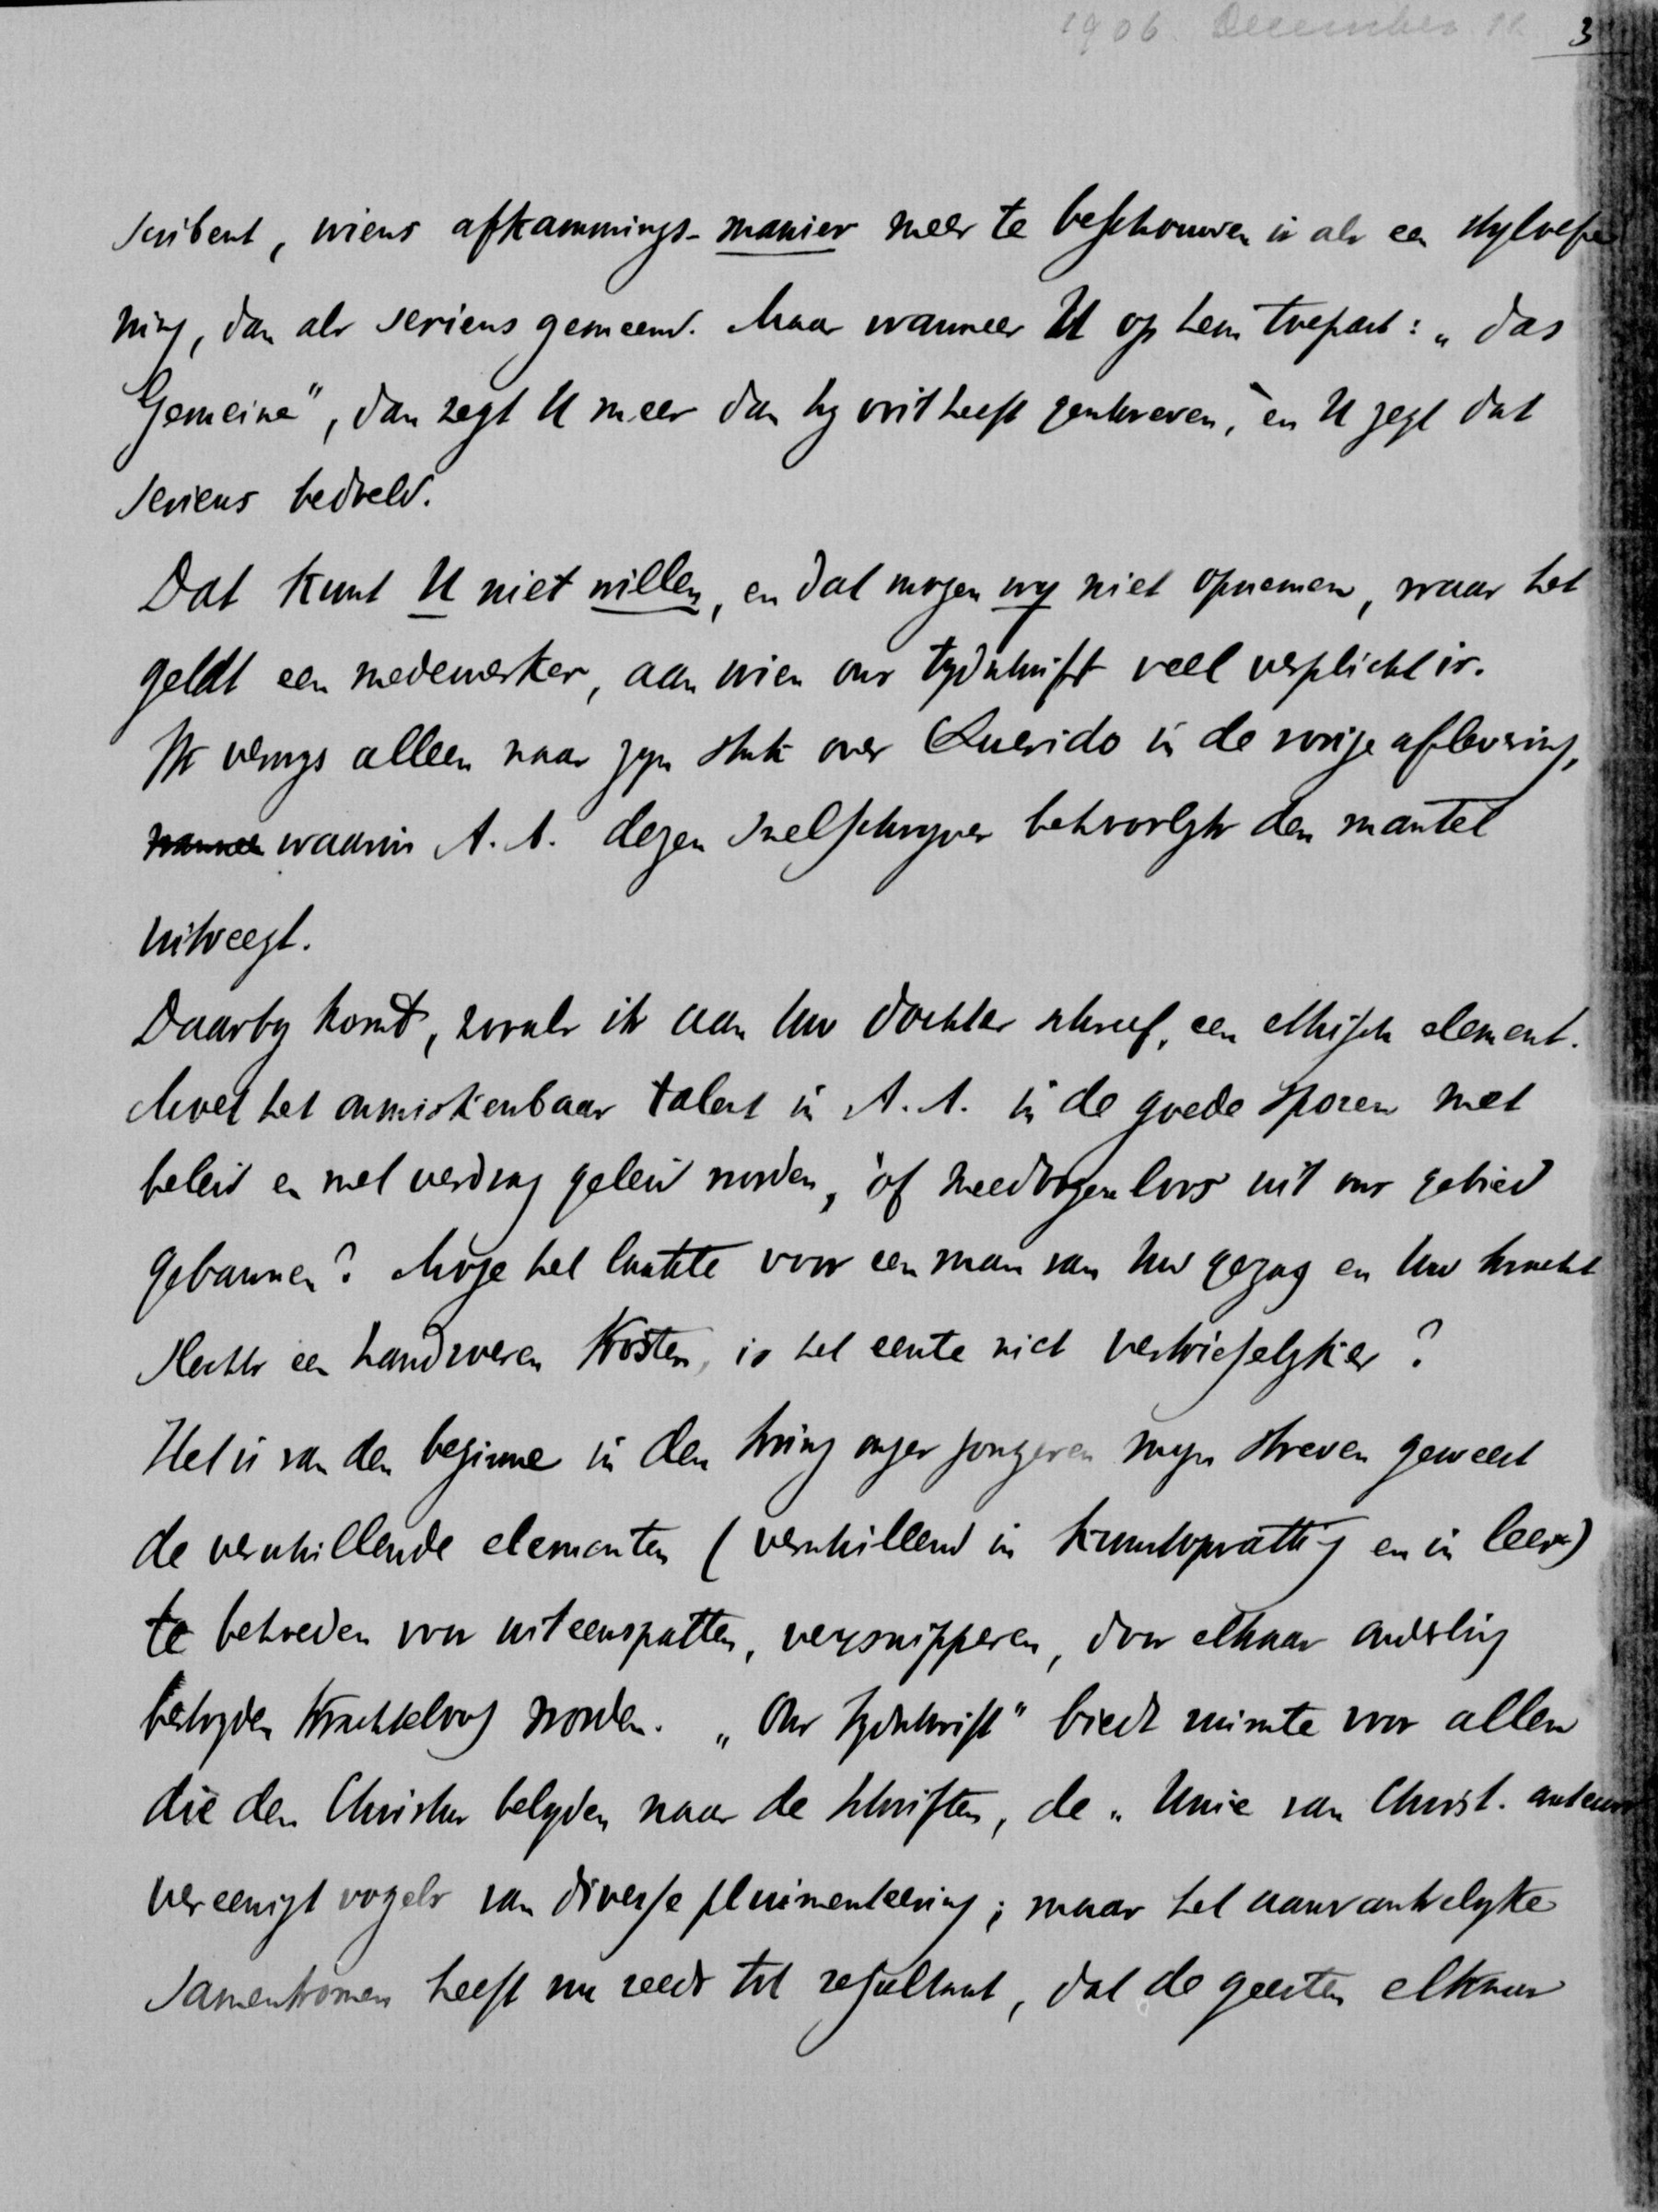 1906. December 12 3
scribent, wiens afkammings-manier meer te beschouwen is als een styloefe
ning, dan als serieus gemeend. Maar wanneer U op hem toepast: „das
Gemeine", dan zegt U meer dan hy ooit heeft geschreven, èn U zegt dat
serieus bedoeld.
Dat kunt U niet willen, en dat mogen wy niet opnemen, waar het
geldt een medewerker, aan wien ons tydschrift veel verplicht is.
Ik verwys alleen naar zyn stuk over Querido in de vorige aflevering,
waarin A. A. dezen snelschryver behoorlyk den mantel
uitveegt.
Daarby komt, zooals ik aan Uw dochter schreef, een ethisch element.
Moet het onmiskenbaar talent in A. A. in de goede sporen met
beleid en met verdrag geleid worden, òf meedoogenloos uit ons gebied
gebannen? Moge het laatste voor een man van Uw gezag en Uw kracht
slechts een handzwaai kosten, is het eerste niet verkieselyker?
Het is van den beginne in den kring onzer jongeren myn streven geweest
de verschillende elementen (verschillend in kunstopvatting en in leer)
te behoeden voor uiteenspatten, versnipperen, door elkaar onderling
bestryden krachteloos worden. „Ons Tydschrift" biedt ruimte voor allen
die den Christus belyden naar de Schriften, de „Unie van Christ. auteurs
vereenigt vogels van diverse pluimenteering; maar het aanvankelyke
samenkomen heeft nu reeds tot resultaat, dat de geesten elkaar